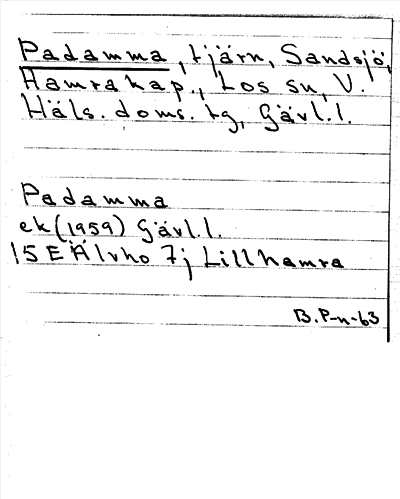 Padamma, tjärn, Sandsjö,
Hamra kap., Los sn, V.
Häls. doms. tg, Gävl.l.
Padamma
ek (1959) Gävl.l.
15E Älvho 7j Lillhamra
B. P-n-63